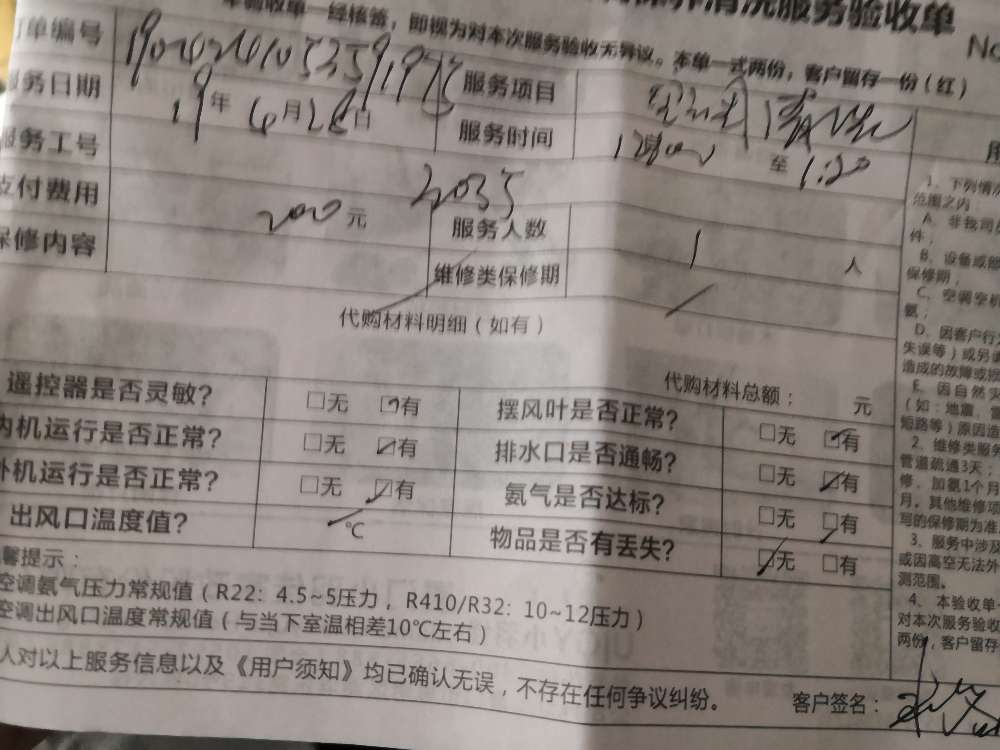 养清洗服务验收单
本验收单一经核签，即视为对本次服务验收无异议。本单一式两份，客户留存一份（红）
No
订单编号
服务项目
服务日期 19年6月28日
服务时间 至 1:20
服务工号 2035
支付费用 200元
服务人数 1 人
保修内容
维修类保修期
代购材料明细（如有）
代购材料总额： 元
遥控器是否灵敏? □无 □有
摆风叶是否正常? □无 □有
内机运行是否正常? □无 □有
排水口是否通畅? □无 □有
外机运行是否正常? □无 □有
氨气是否达标? □无 □有
出风口温度值? ℃
物品是否有丢失? □无 □有
馨提示：
空调氨气压力常规值（R22：4.5~5压力，R410/R32：10~12压力）
空调出风口温度常规值（与当下室温相差10℃左右）
人对以上服务信息以及《用户须知》均已确认无误，不存在任何争议纠纷。
客户签名：
1、下列情
范围之内
A、非我司
件；
B、设备或
保修期；
C、空调空
氨；
D、因客户行
失误等）或另
造成的故障或
E、因自然
（如：地震、
短路等）原因造
2、维修类服
管道疏通3天；
修、加氨1个月
月。其他维修
写的保修期为准
3、服务中涉及
或因高空无法外
测范围。
4、本验收单
对本次服务验收
两份，客户留存